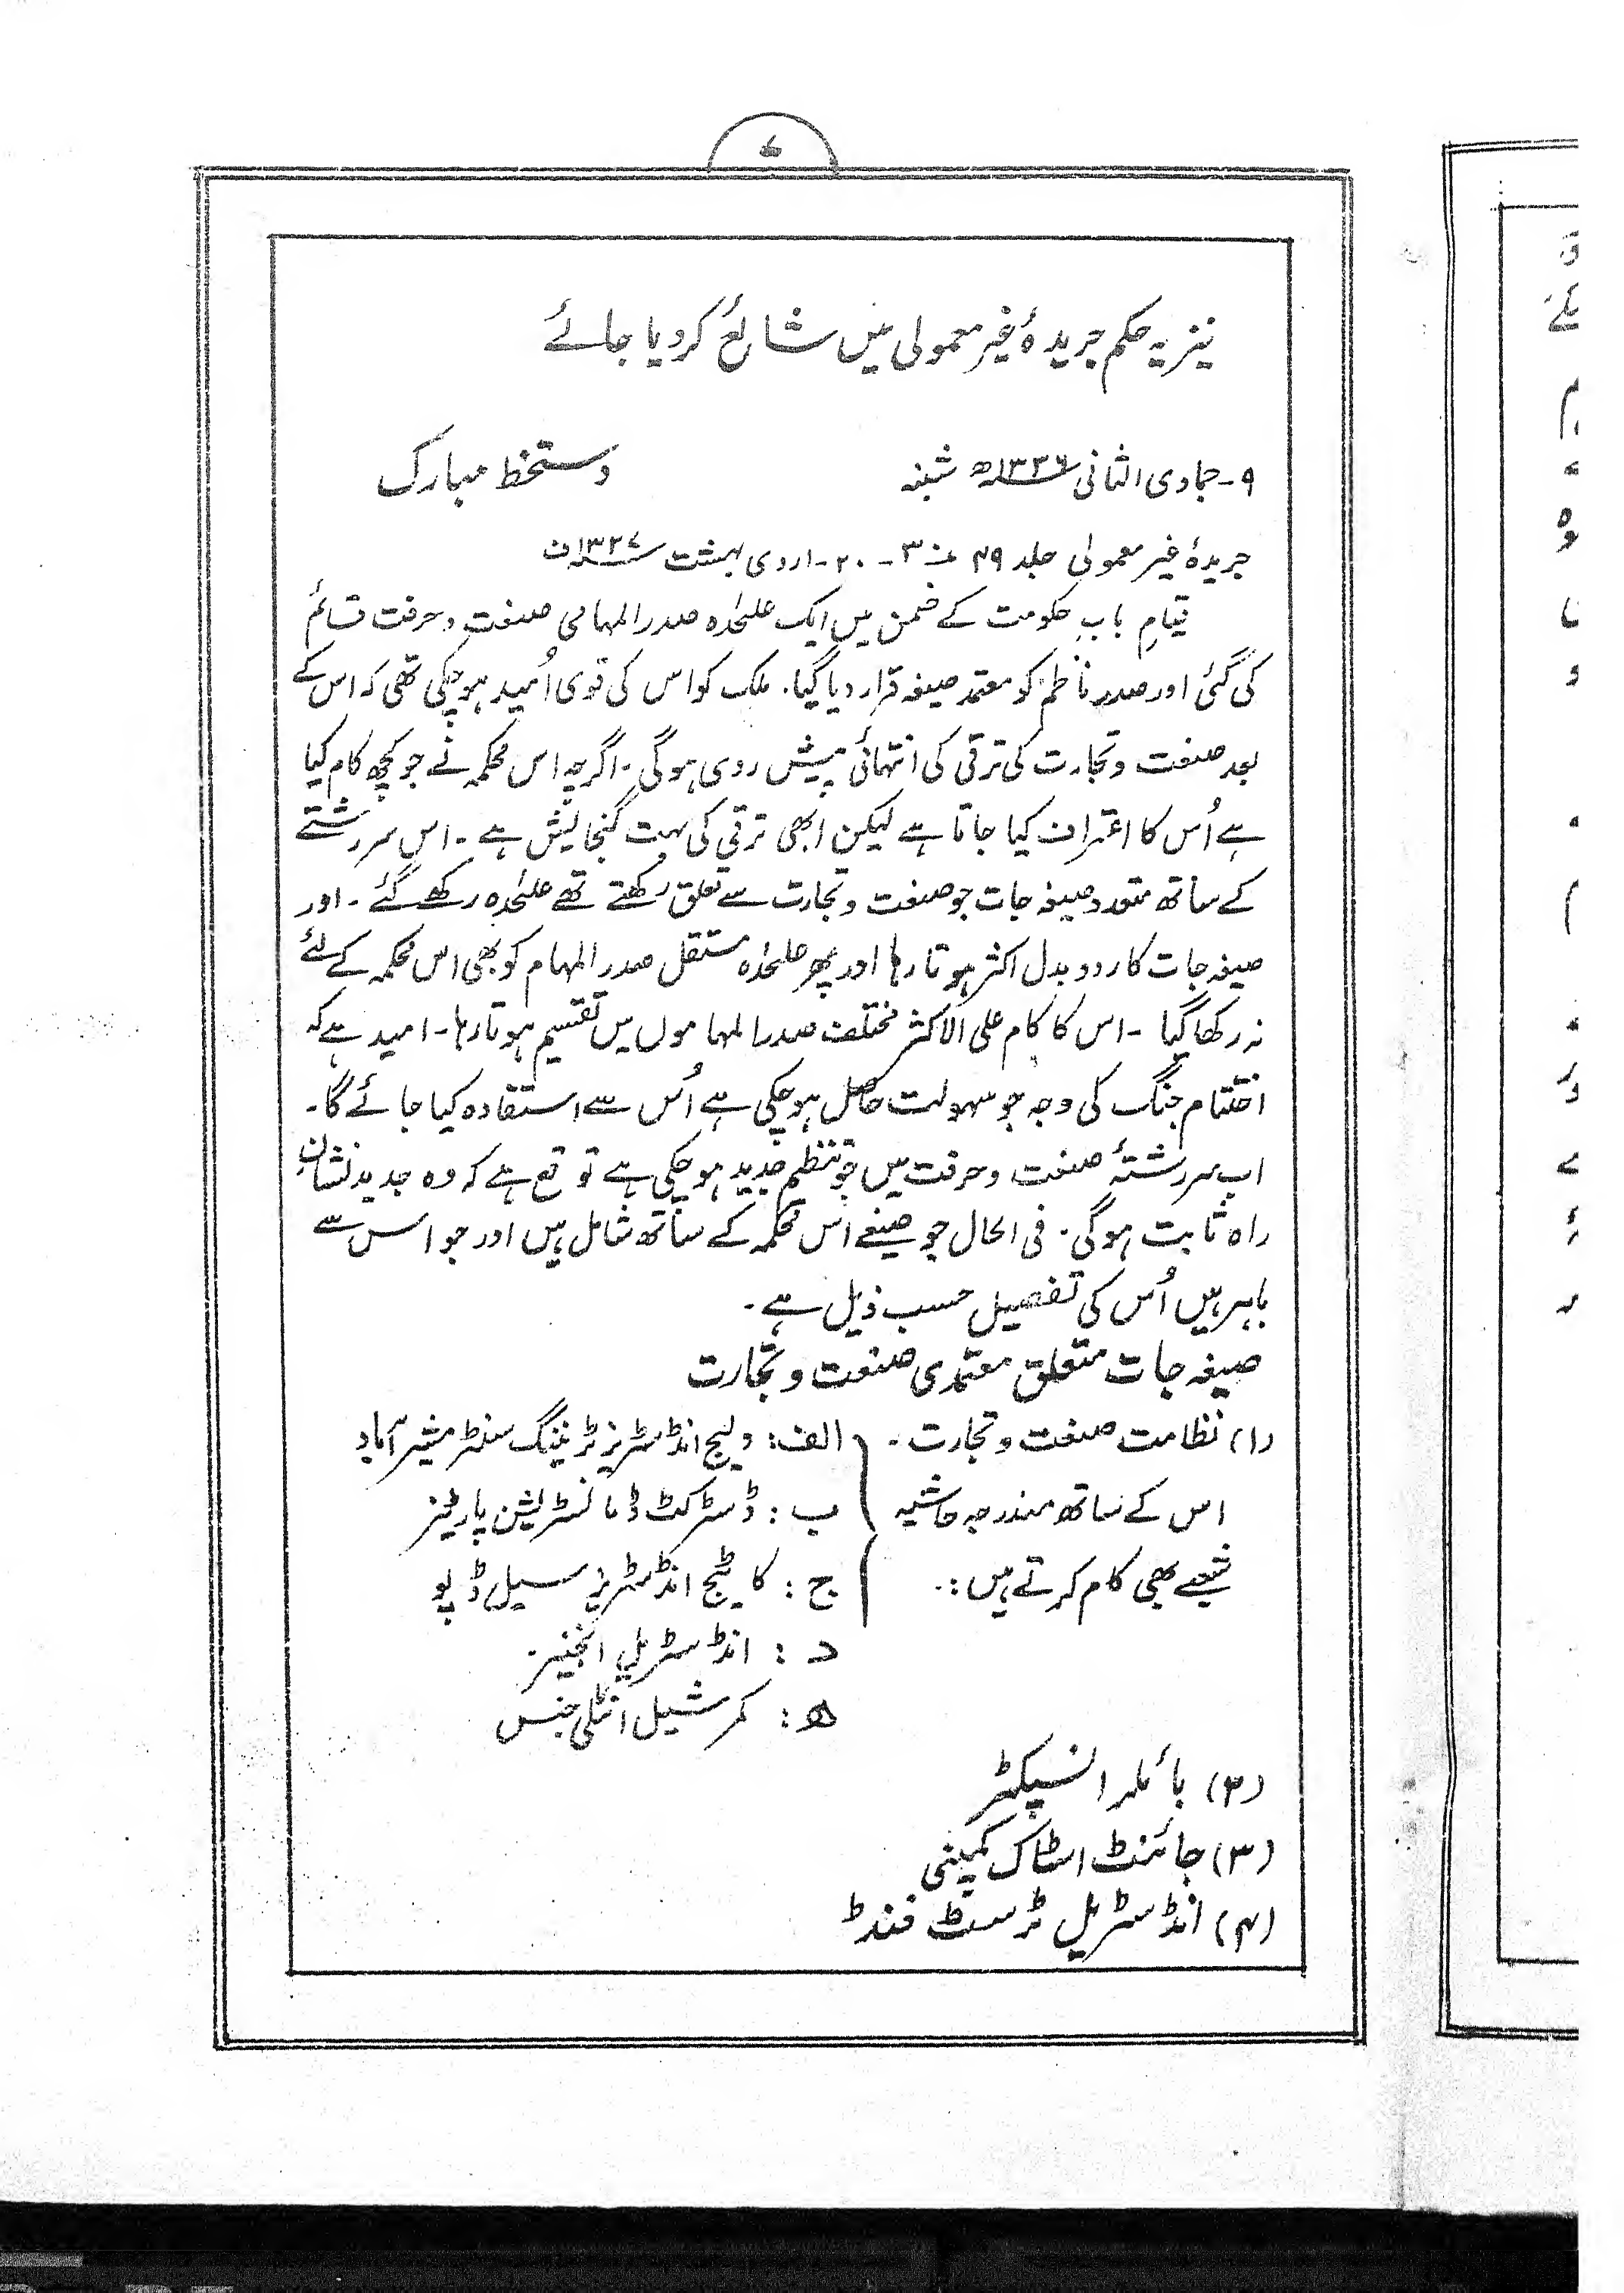 ۷
نیز یہ حکم جریدۂ غیر معمولی میں شائع کردیا جائے
۹۔ جمادی الثانی ۱۳۳۶ھ شبنہ
دستخط مبارک
جریدۂ غیر معمولی جلد ۴۹ نمبر ۳۔ ۲۰۔ اردی بہشت ۱۳۲۷ف
قیامِ بابِ حکومت کے ضمن میں ایک علٰحدہ صدر المہامی صنعت و حرفت قائم
کی گئی اور صدر ناظم کو معتمد صیغہ قرار دیا گیا۔ ملک کو اس کی قوی اُمید ہوچکی تھی کہ اس کے
بعد صنعت و تجارت کی ترقی کی انتہائی پیش روی ہوگی۔ اگرچہ اس محکمہ نے جو کچھ کام کیا
ہے اُس کا اعتراف کیا جاتا ہے لیکن ابھی ترقی کی بہت گنجایش ہے۔ اس سررشتے
کے ساتھ متعدد صیغہ جات جو صنعت و تجارت سے تعلق رکھتے تھے علٰحدہ رکھے گئے۔ اور
صیغہ جات کا ردو بدل اکثر ہوتا رہا اور پھر علٰحدہ مستقل صدر المہام کو بھی اس محکمہ کے لئے
نہ رکھا گیا۔ اس کا کام علی الاکثر مختلف صدر المہاموں میں تقسیم ہوتا رہا۔ امید ہے کہ
اختتام جنگ کی وجہ جو سہولت حاصل ہوچکی ہے اُس سے استفادہ کیا جائے گا۔
اب سررشتۂ صنعت و حرفت میں جو تنظیم جدید ہوچکی ہے توقع ہے کہ وہ جدید نشانِ
راہ ثابت ہوگی۔ فی الحال جو صیغے اس محکمہ کے ساتھ شامل ہیں اور جو اس سے
باہر ہیں اُس کی تفصیل حسب ذیل ہے۔
صیغہ جات متعلق معتمدی صنعت و تجارت
(۱) نظامت صنعت و تجارت۔
الف: ولیج انڈسٹریز ٹریننگ سنٹر مشیرآباد
اس کے ساتھ مندرجہ حاشیہ
ب: ڈسٹرکٹ ڈمانسٹریشن پارٹیز
شعبے بھی کام کرتے ہیں:۔
ج: کاٹیج انڈسٹریز سیل ڈپو
د: انڈسٹریل انجنیر۔
ھ: کمرشیل انٹلی جنس
(۲) بائلر انسپکٹر
(۳) جائنٹ اسٹاک کمپنی
(۴) انڈسٹریل ٹرسٹ فنڈ